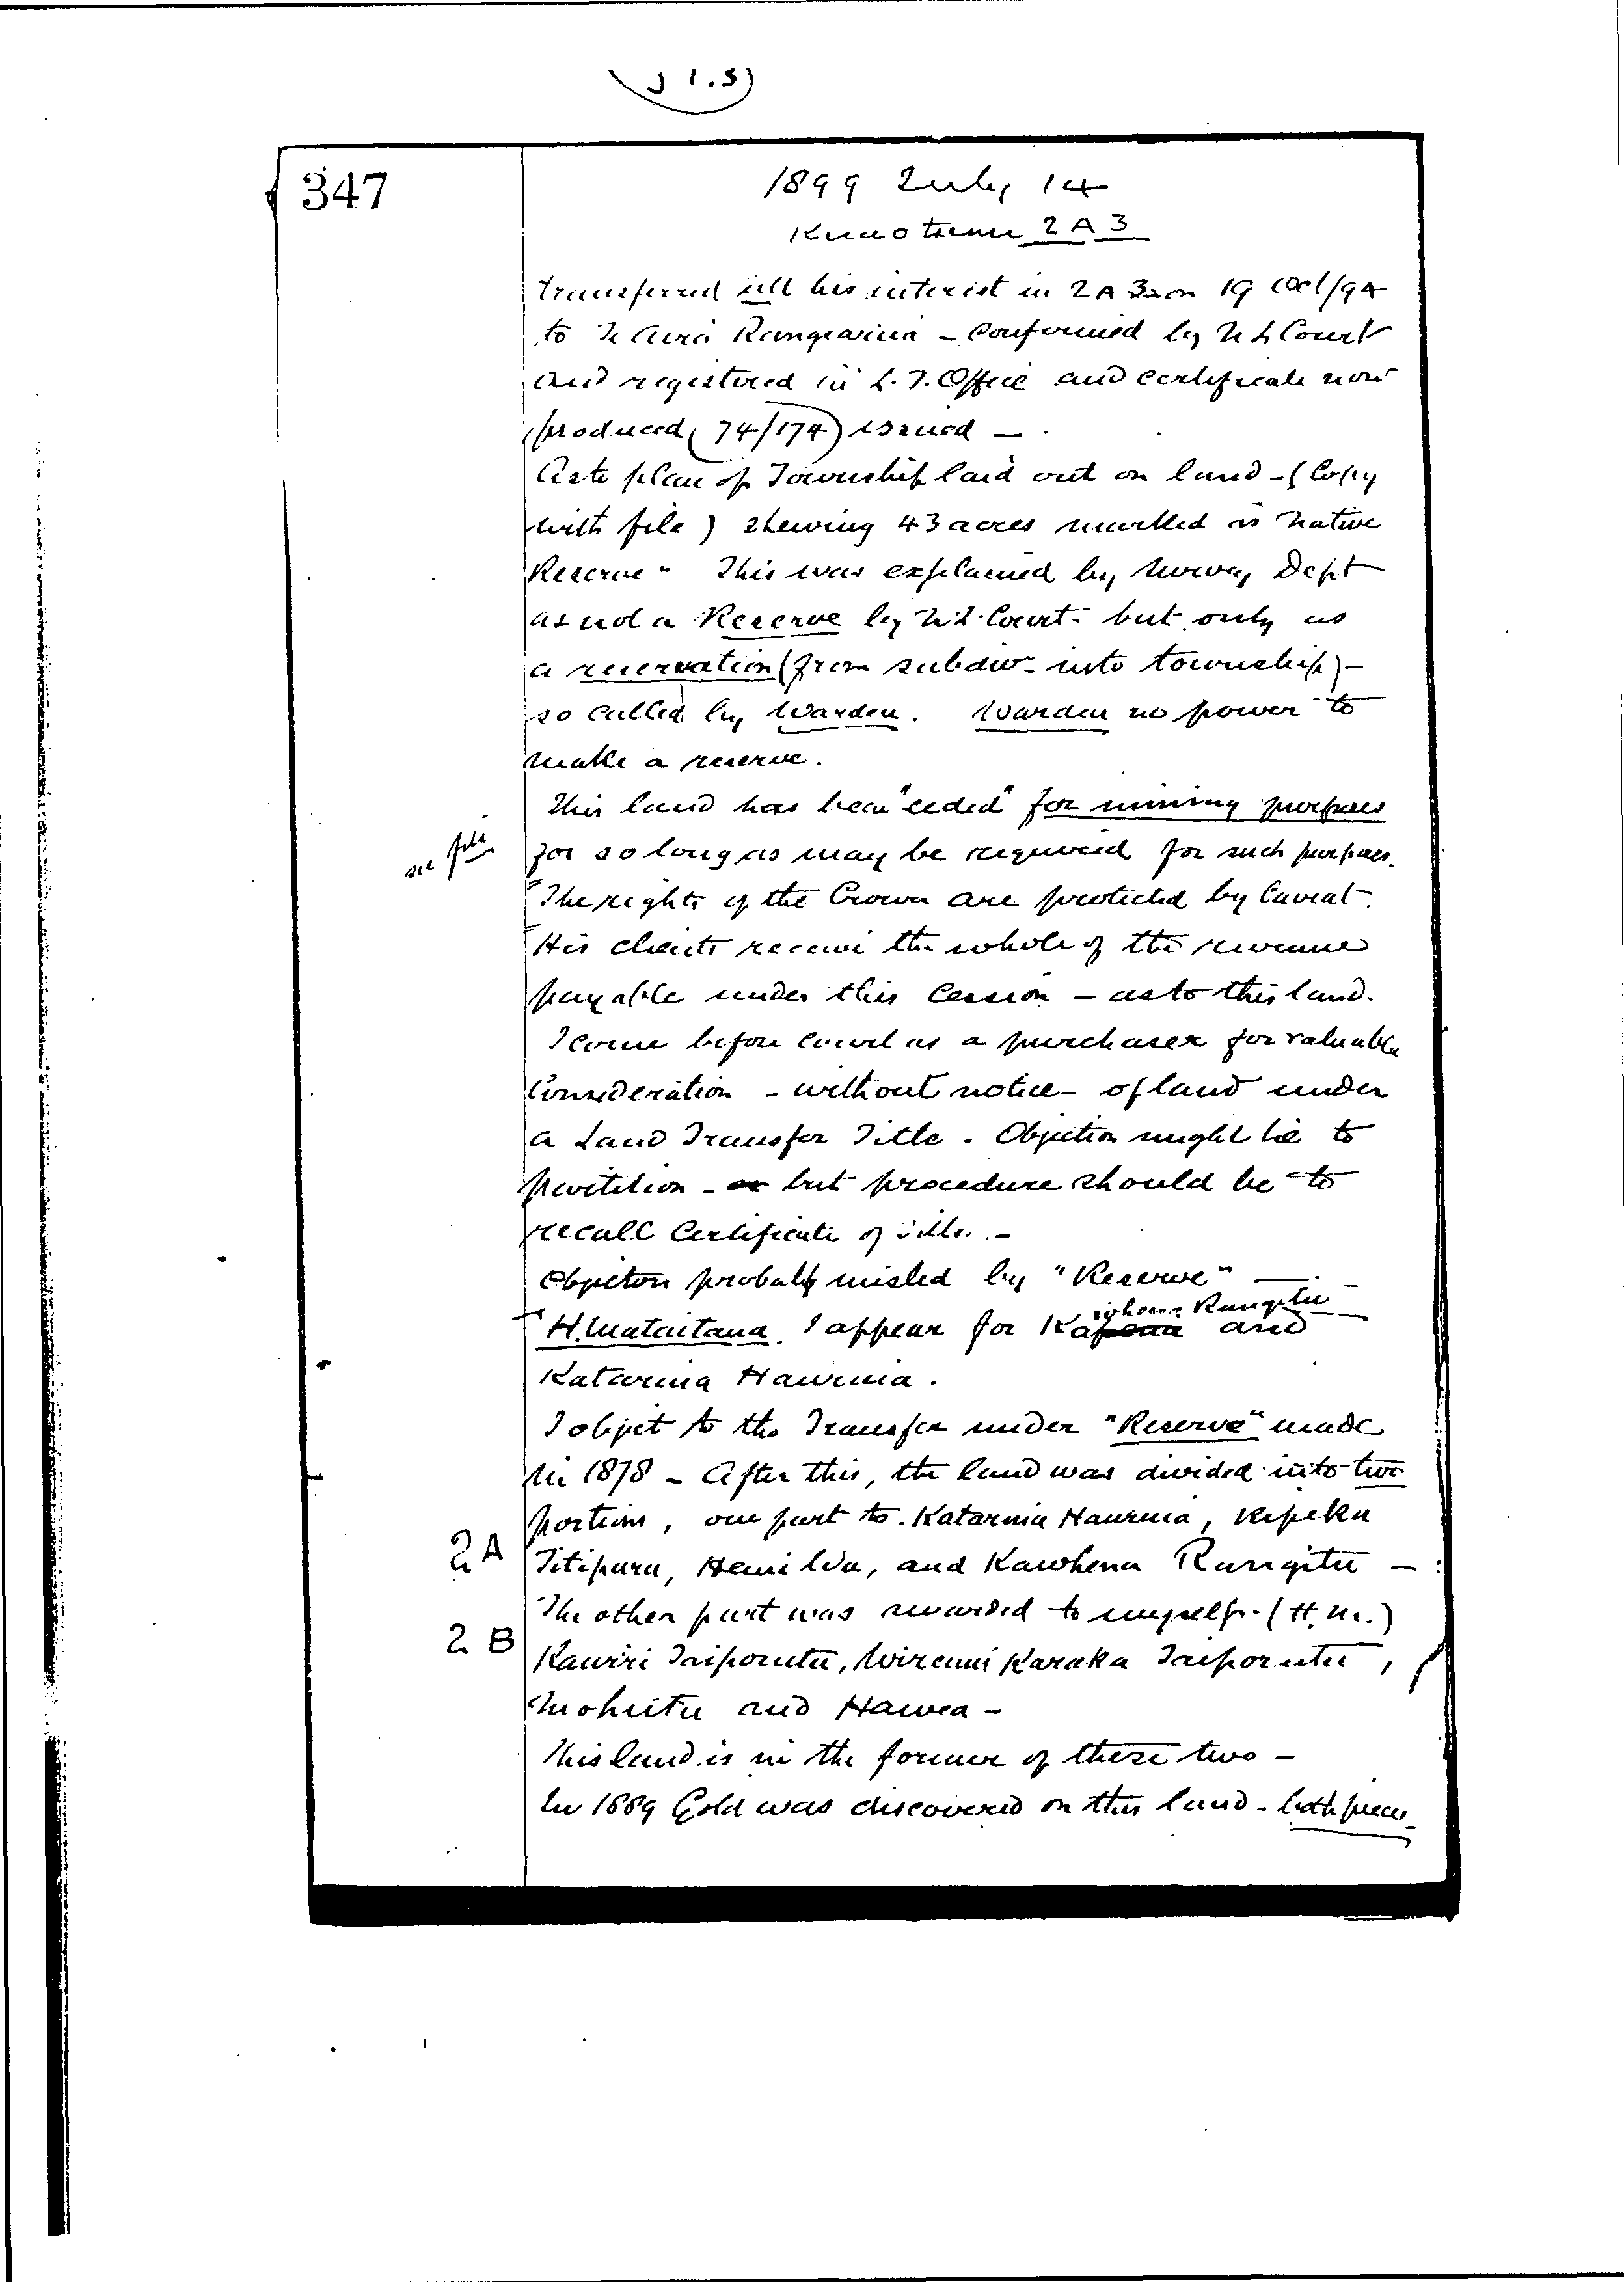 (J 1.5)
347
1899 July 14
Kuaotunu 2A3
transferred all his interest in 2A3 on 19 Oct/94
to Te Aira Rangiarua – confirmed by N L Court
and registered in L.T. Office and certificate now
produced (74/174) issued –
As to plan of Township laid out on land – (Copy
with file) shewing 43 acres marked as "Native
Reserve" This was explained by Survey Dept
as not a Reserve by N.L. Court – but only as
a reservation (from subdivn. into township) –
so called by Warden. Warden no power to
make a reserve.
This land has been "ceded" for mining purposes
see file
for so long as may be required for such purposes.
The rights of the Crown are protected by Caveat.
His clients receive the whole of the revenue
payable under this Cession – as to this land.
I come before Court as a purchaser for valuable
Consideration – without notice – of land under
a Land Transfer Title. Objection might lie to
partition – or but procedure should be to
recall Certificate of title. –
Objector probably misled by "Reserve" –
H. Mataitaua. I appear for Kawhena Rangitu and
Katarina Hauruia.
I object to the Transfer under "Reserve" made
in 1878 – After this, the land was divided into two
portions, one part to Katarina Hauruia, Ripeka
2A
Titipara, Hemi Wa, and Kawhena Rangitu –
The other part was awarded to myself. (H.M.)
2B
Rawiri Taiporutu, Wiremu Karaka Taiporutu,
Mohutu and Hawea –
This land is in the former of these two –
In 1889 Gold was discovered on this land – both pieces